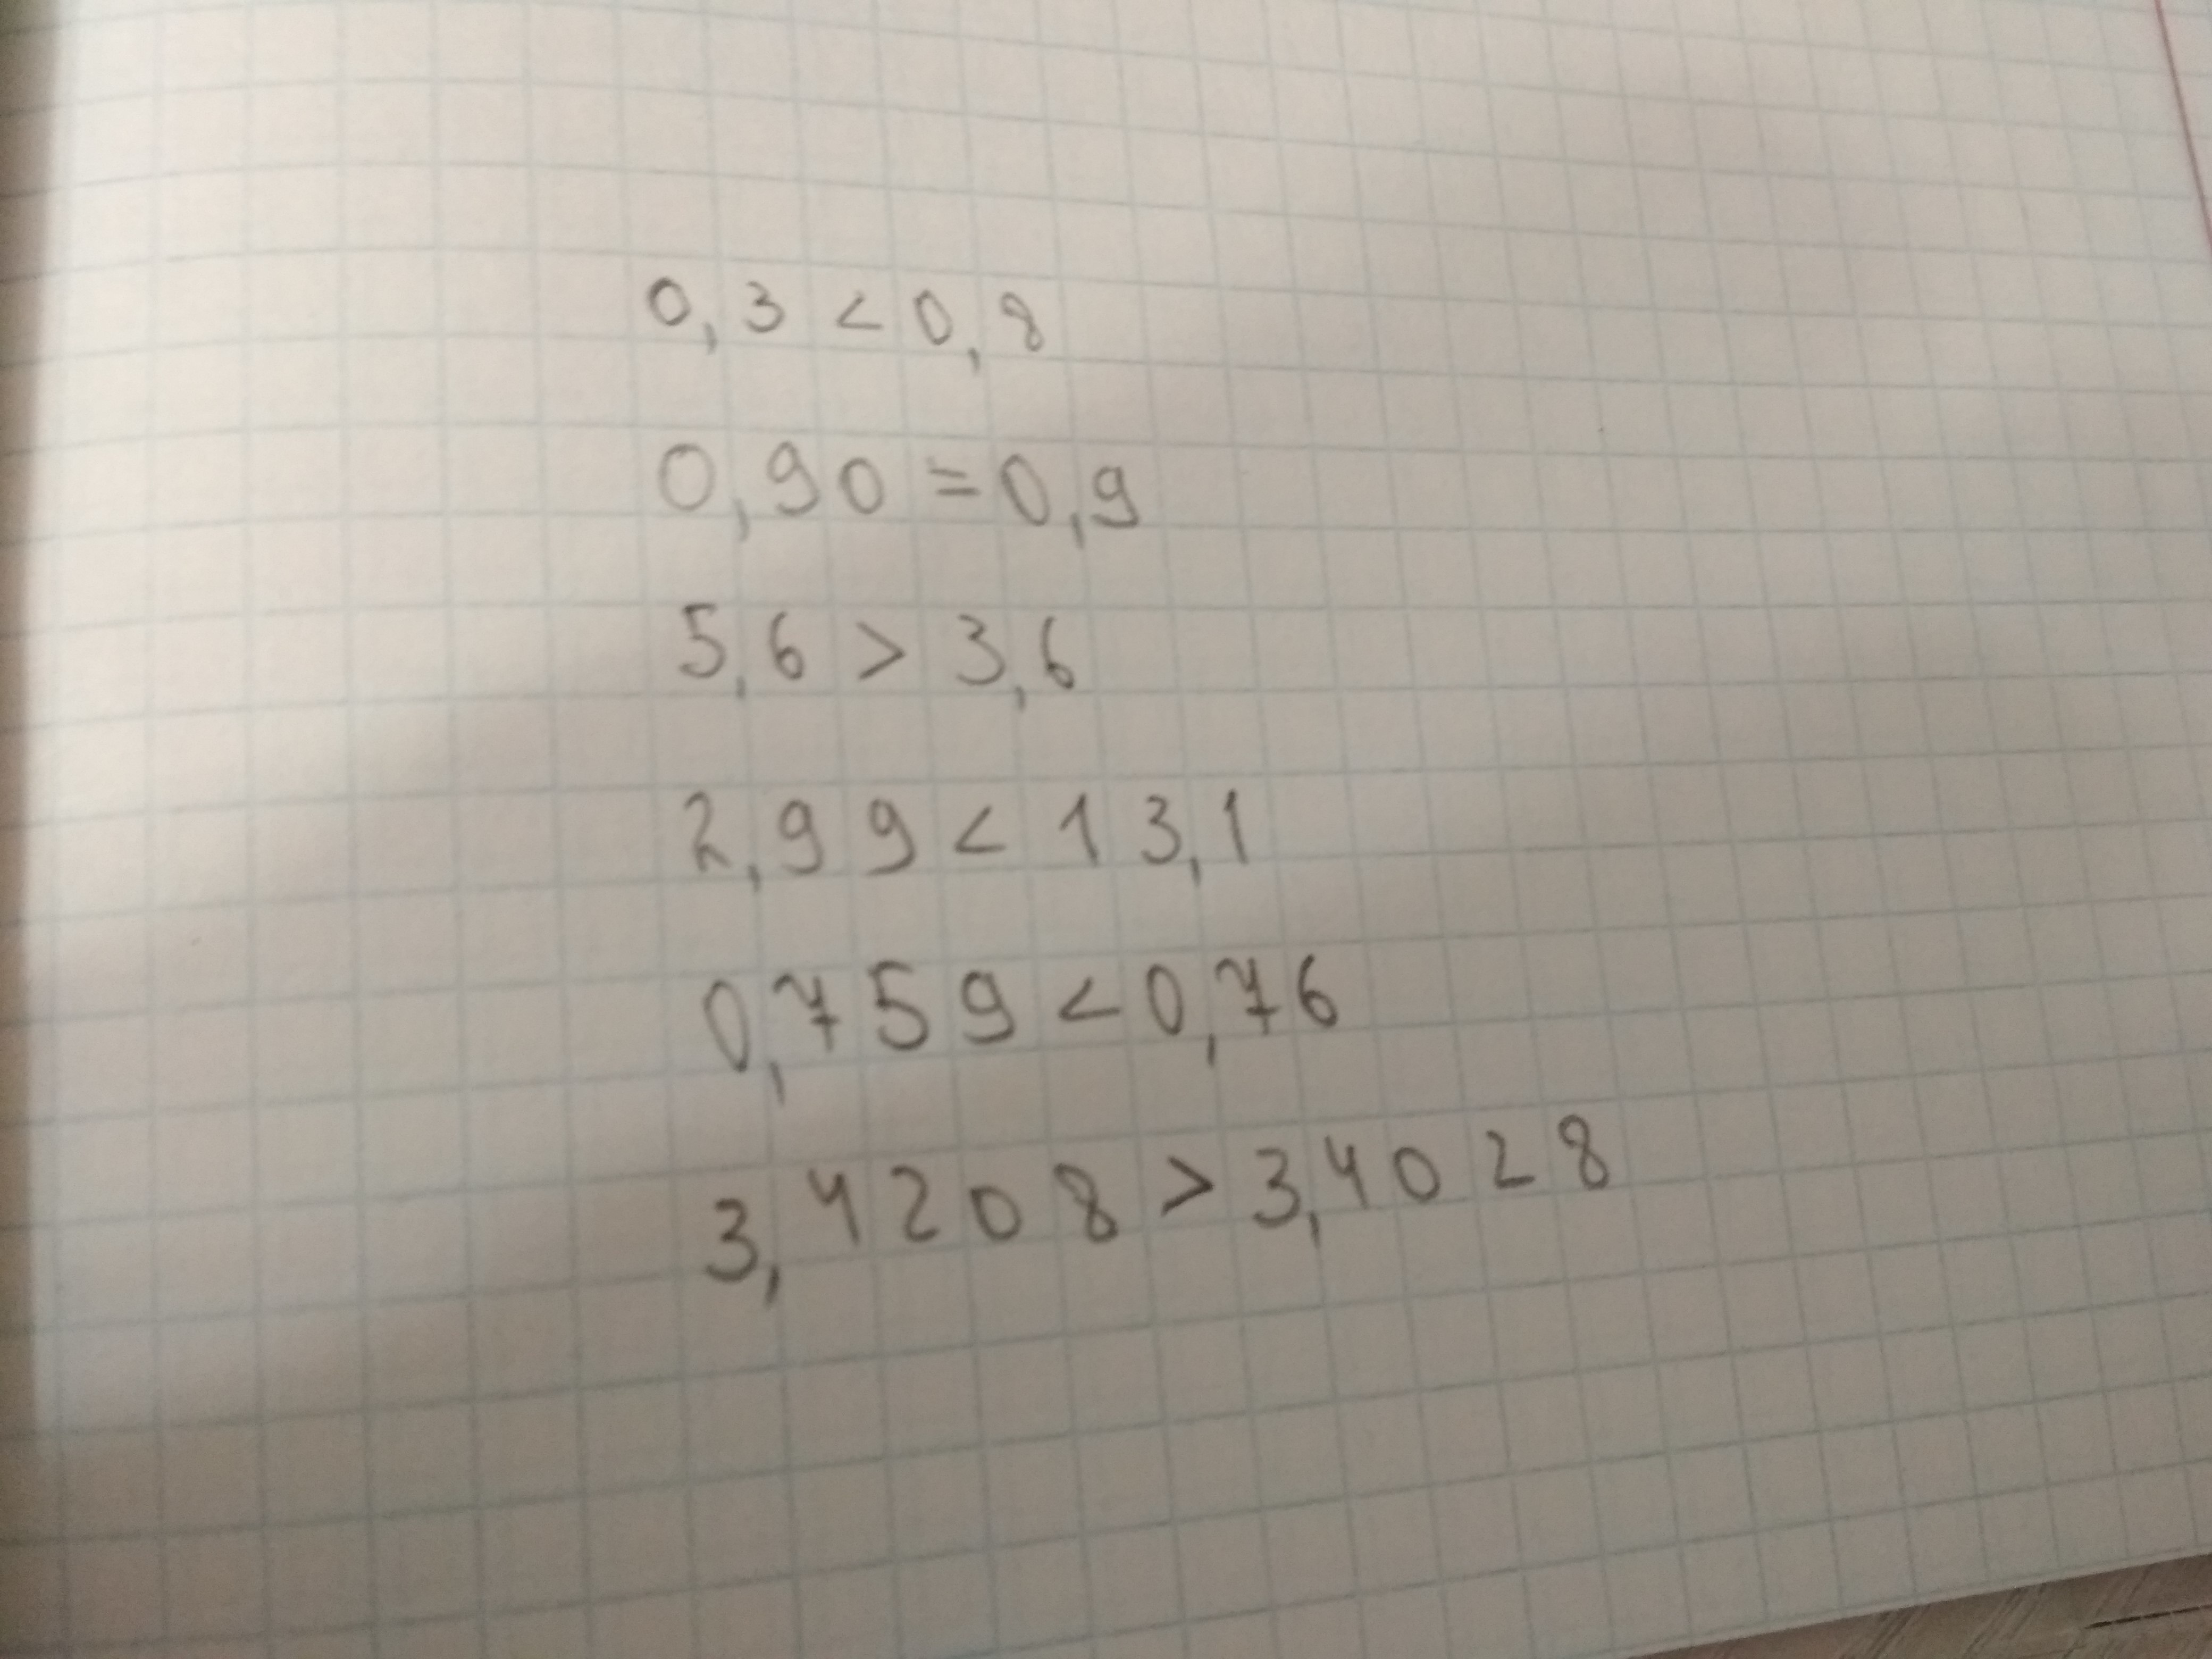 0,3 < 0,8
0,90 = 0,9
5,6 > 3,6
2,99 < 13,1
0,759 < 0,76
3,4208 > 3,4028